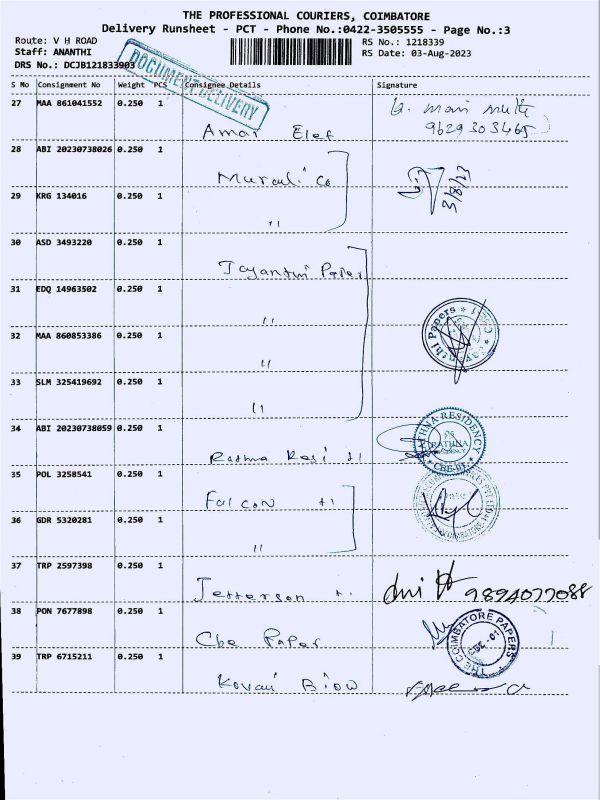 THE PROFESSIONAL COURIERS, COIMBATORE
Delivery Runsheet - PCT - Phone No.:0422-3505555 - Page No.:3
Route: V H ROAD
RS No.: 1218339
Staff: ANANTHI
RS Date: 03-Aug-2023
DRS No.: DCJB121833903
DOCUMENT DELIVERY
S No Consignment No Weight PCS Consignee Details Signature
27 MAA 861041552 0.250 1
9629303465
Amar Elef
28 ABI 20230738026 0.250 1
Murali Co
3/8/23
29 KRG 134016 0.250 1
"
30 ASD 3493220 0.250 1
Jayanthi Paper
31 EDQ 14963502 0.250 1
"
32 MAA 860853386 0.250 1
"
33 SLM 325419692 0.250 1
"
34 ABI 20230738059 0.250 1
RATHNA RESIDENCY
CBE-01
Rathna Resi
35 POL 3258541 0.250 1
Falcon
36 GDR 5320281 0.250 1
"
37 TRP 2597398 0.250 1
Jefferson
9894077088
38 PON 7677898 0.250 1
Cbe Paper
THE COIMBATORE PAPERS
CBE-01
39 TRP 6715211 0.250 1
Kovai Biow